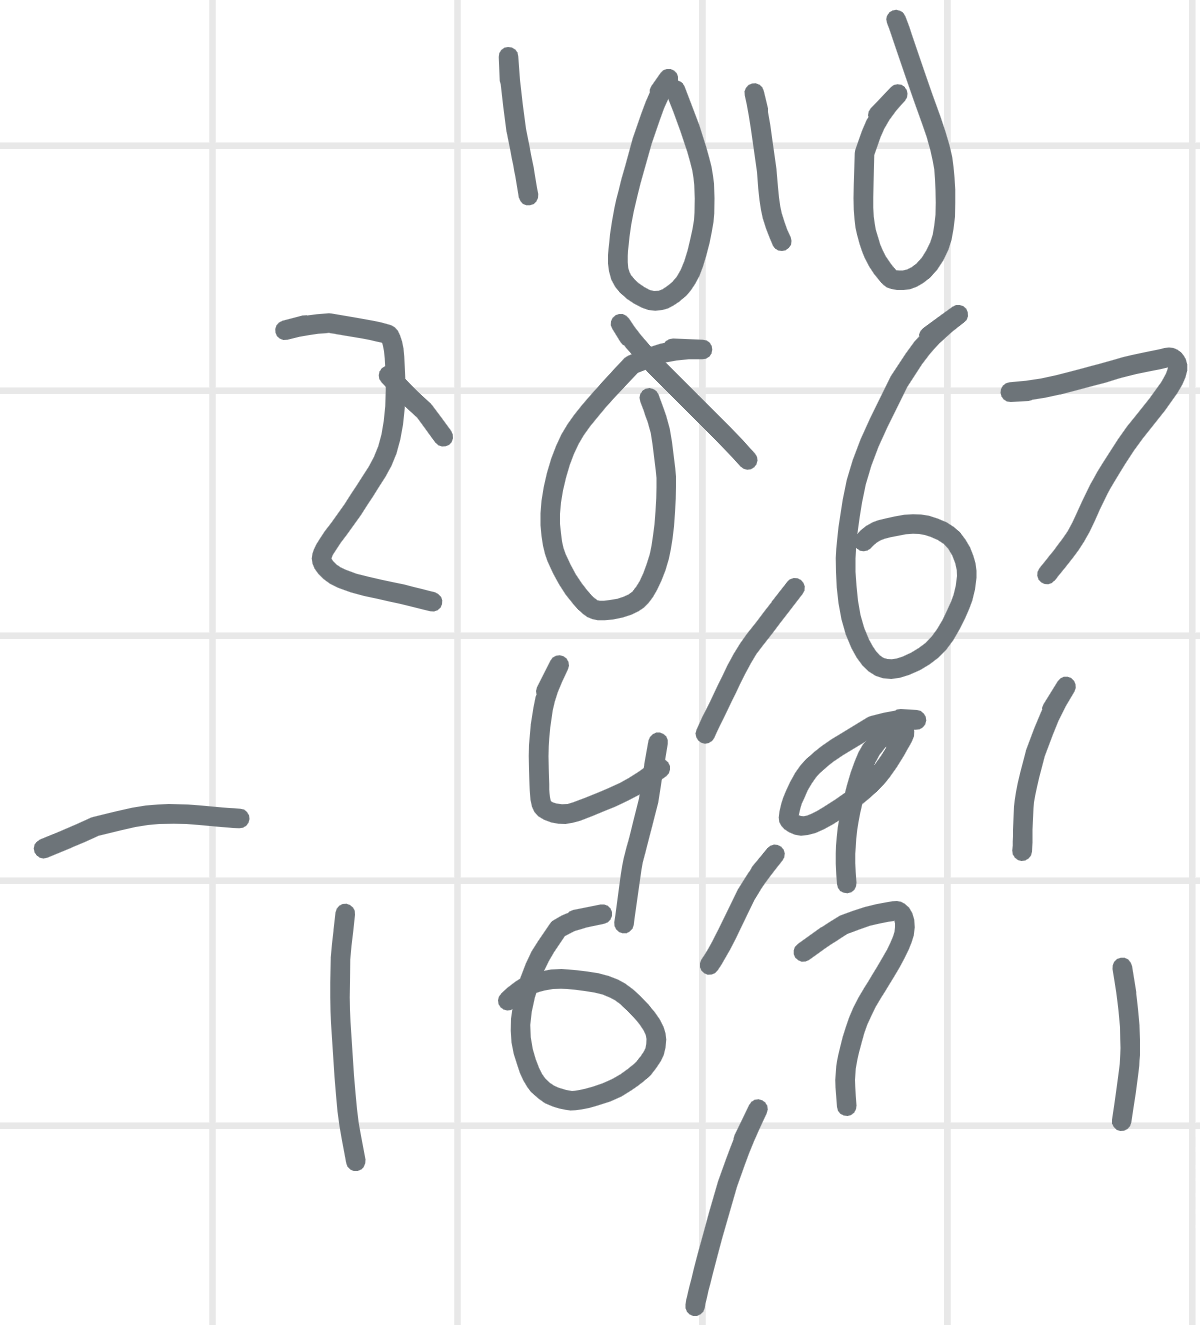 10 10
20,67
- 4,91
16,71